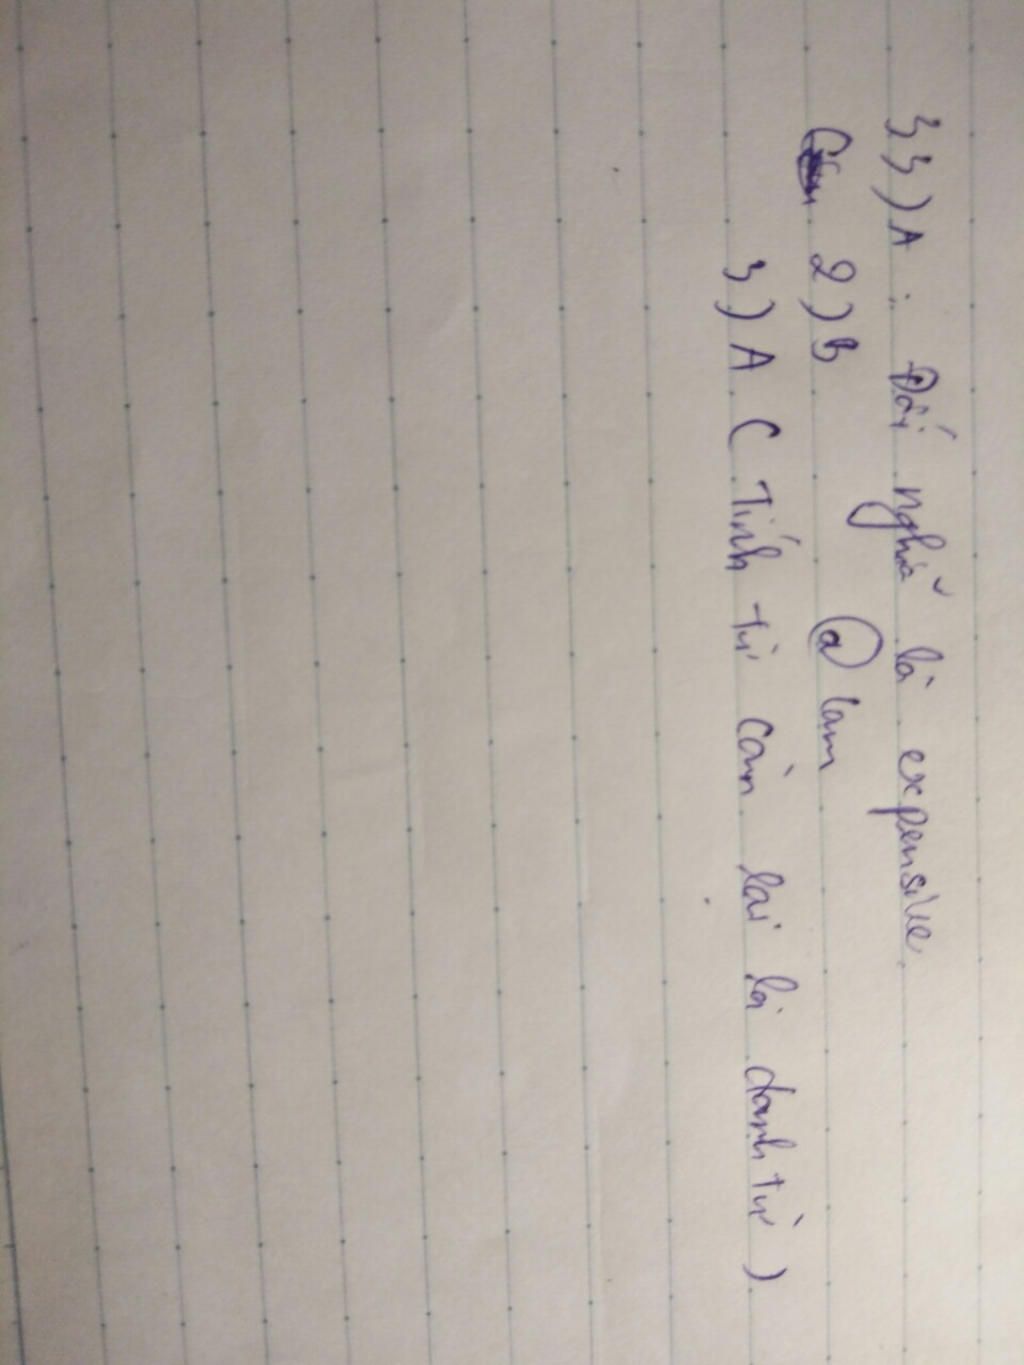 33) A : Đối nghĩa là expensive.
2) B @ lam
3) A ( Tính từ còn lại là danh từ )